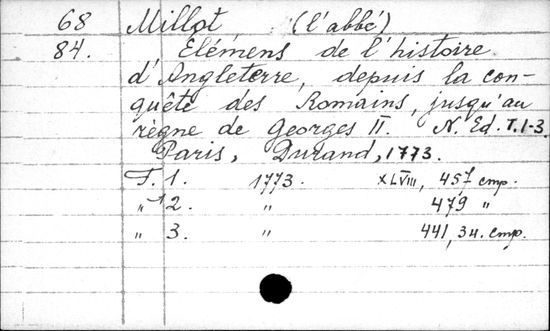 68 Millot (l'abbé)
84. Elémens de l'histoire
d'Angleterre, depuis la con-
quête des Romains, jusqu'au
règne de Georges II. N. Ed. T.1-3.
Paris, Durand, 1773.
T. 1. 1773. XLVIII, 457 cmp.
" 2. " 479 "
" 3. " 441, 34. cmp.